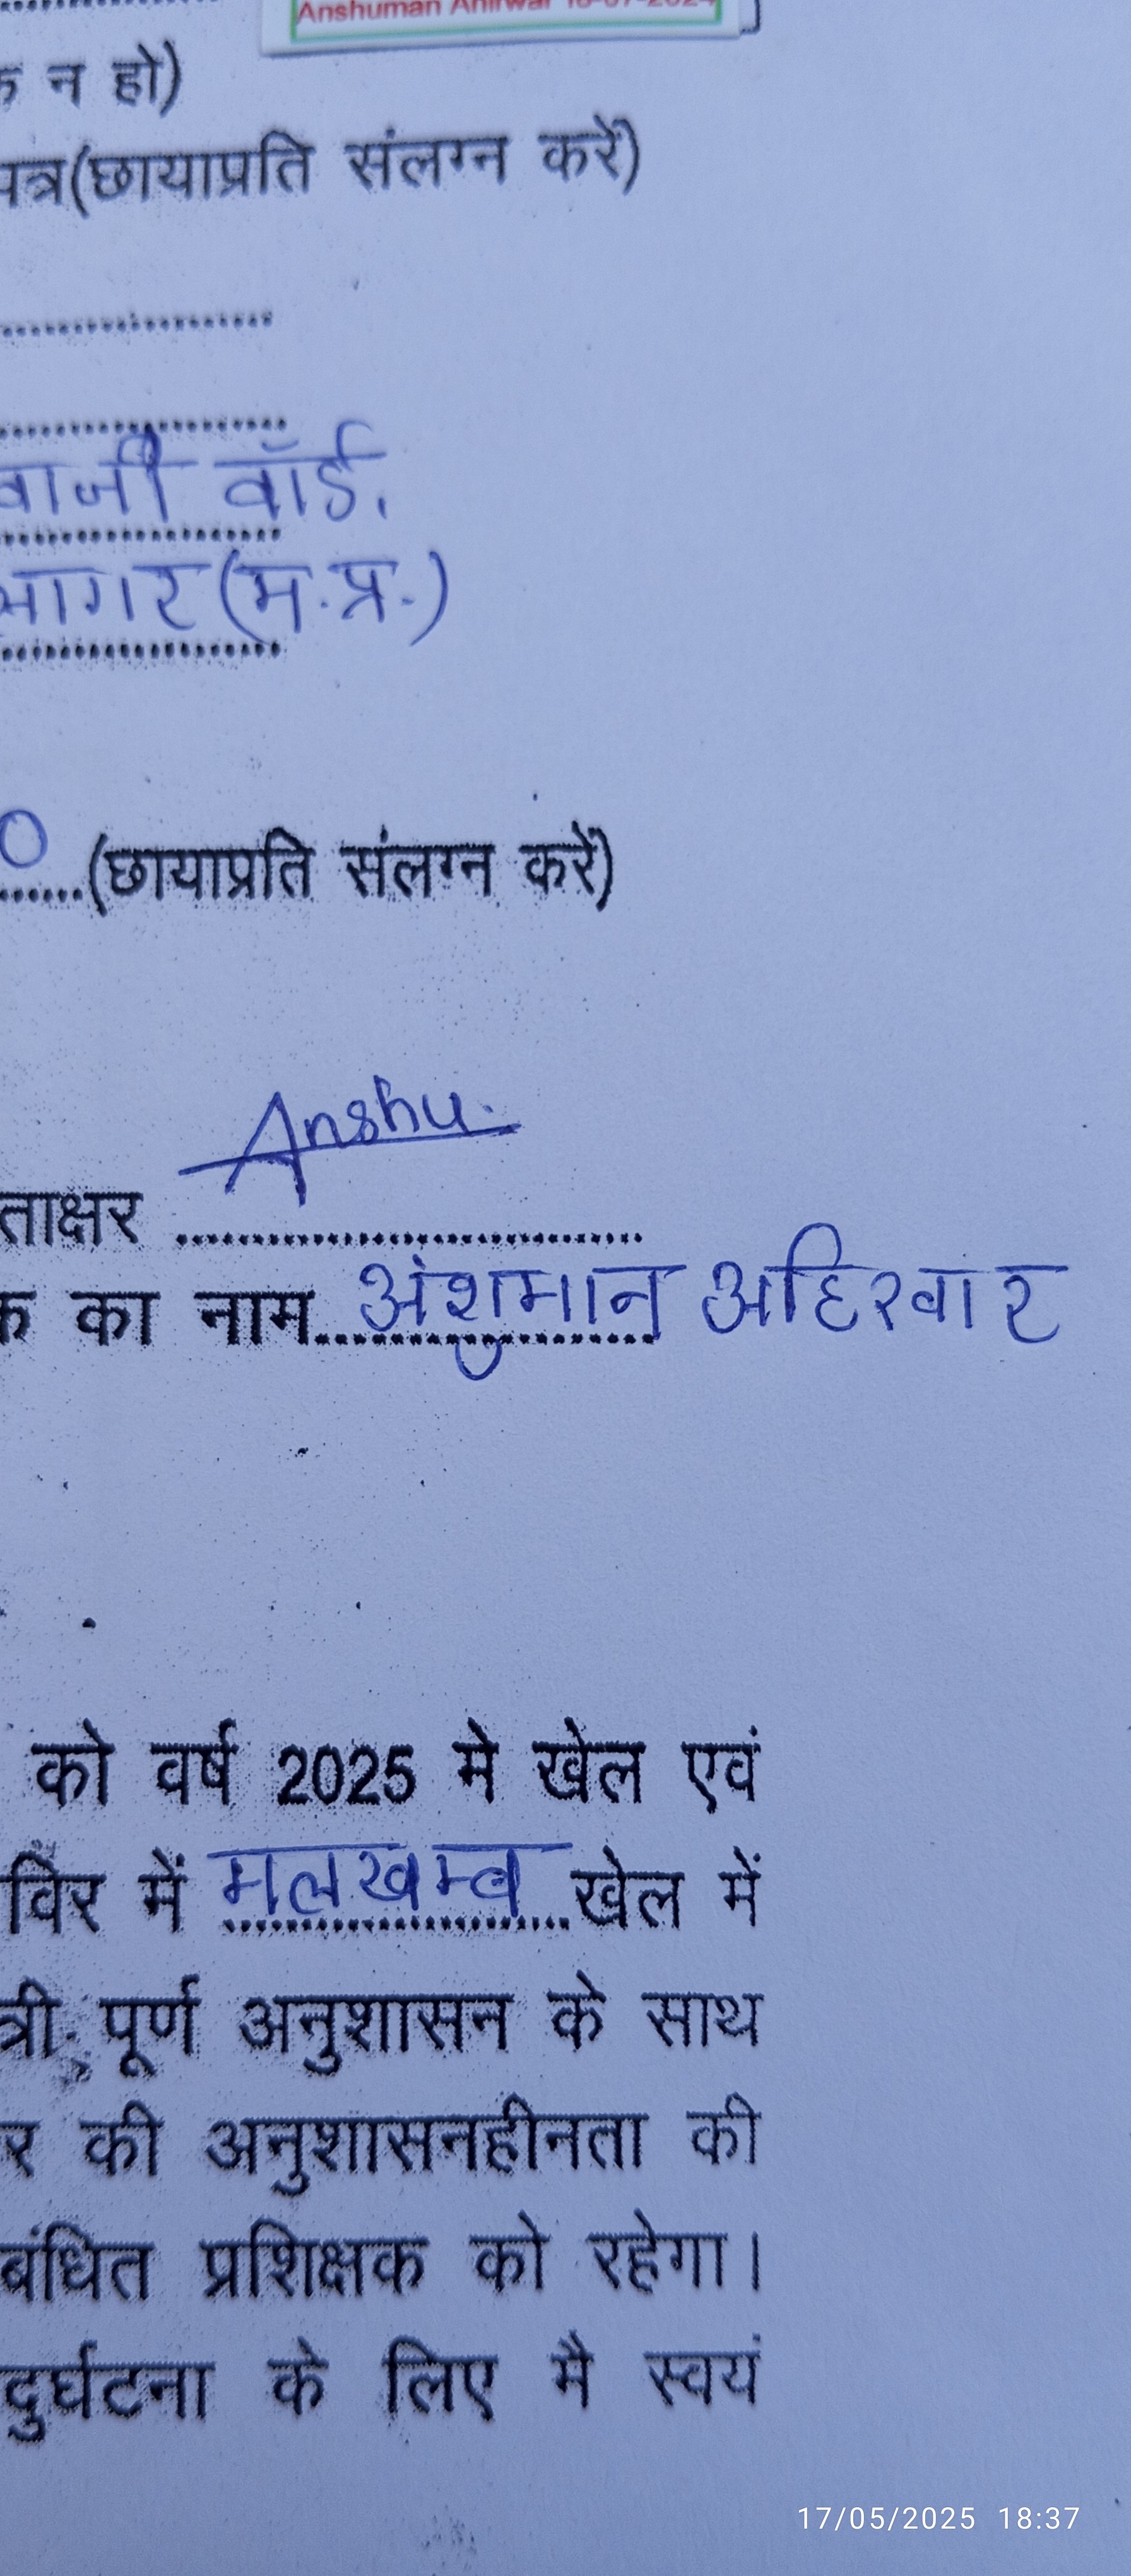 Anshuman Ahirwar 18-07-2024
न हो)
पत्र(छायाप्रति संलग्न करें)
वाजी वॉर्ड,
सागर (म.प्र.)
0 (छायाप्रति संलग्न करें)
Anshu.
ताक्षर
क का नाम अंशुमान अहिरवार
को वर्ष 2025 मे खेल एवं
विर में मलखम्ब खेल में
त्री, पूर्ण अनुशासन के साथ
र की अनुशासनहीनता की
बंधित प्रशिक्षक को रहेगा।
दुर्घटना के लिए मै स्वयं
17/05/2025 18:37